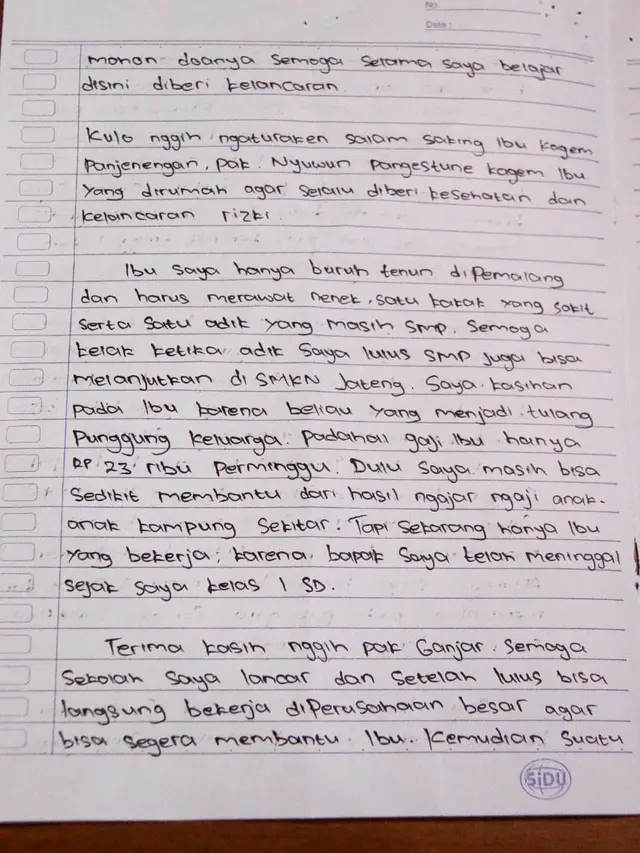 No.
Date:
mohon doanya semoga selama saya belajar
disini diberi kelancaran.
Kulo nggih ngaturaken salam saking Ibu kagem
Panjenengan, pak. Nyuwun Pangestune kagem Ibu
yang dirumah agar selalu diberi kesehatan dan
kelancaran rizki.
Ibu saya hanya buruh tenun di Pemalang
dan harus merawat nenek, satu kakak yang sakit
serta satu adik yang masih SMP. Semoga
kelak ketika adik saya lulus SMP juga bisa
melanjutkan di SMKN Jateng. Saya kasihan
pada Ibu karena beliau yang menjadi tulang
punggung keluarga. Padahal gaji Ibu hanya
RP 23 ribu perminggu. Dulu saya masih bisa
sedikit membantu dari hasil ngajar ngaji anak-
anak kampung sekitar. Tapi sekarang hanya Ibu
yang bekerja, karena bapak saya telah meninggal
sejak saya kelas 1 SD.
Terima kasih nggih pak Ganjar. Semoga
sekolah saya lancar dan setelah lulus bisa
langsung bekerja diperusahaan besar agar
bisa segera membantu Ibu. Kemudian suatu
SiDU